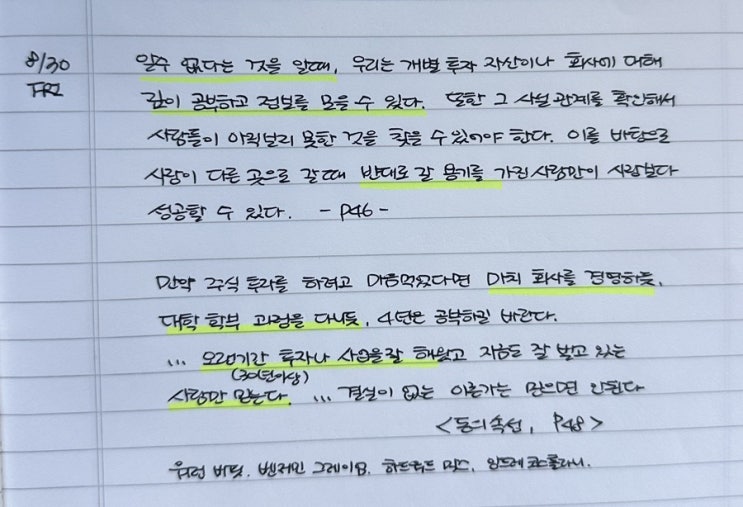 8/30
FRI
알수 없다는 것을 알때, 우리는 개별 투자 자산이나 회사에 대해
깊이 공부하고 정보를 모을 수 있다. 또한 그 사실 관계를 확인해서
사람들이 아직보지 못한 것을 찾을 수 있어야 한다. 이를 바탕으로
시장이 다른 곳으로 갈때 반대로 갈 용기를 가진 사람만이 시장보다
성공할 수 있다. - P46 -
만약 주식 투자를 하려고 마음먹었다면 마치 회사를 경영하듯,
대학 학부 과정을 다니듯, 4년은 공부하길 바란다.
... 오랜기간 투자나 사업을 잘 해왔고 지금도 잘 벌고 있는
(30년이상)
사람만 믿는다. ... 결실이 없는 이론가는 믿으면 안된다
<돈의 속성, P48>
워런 버핏, 벤저민 그레이엄, 하워드 막스, 앙드레 코스톨라니.